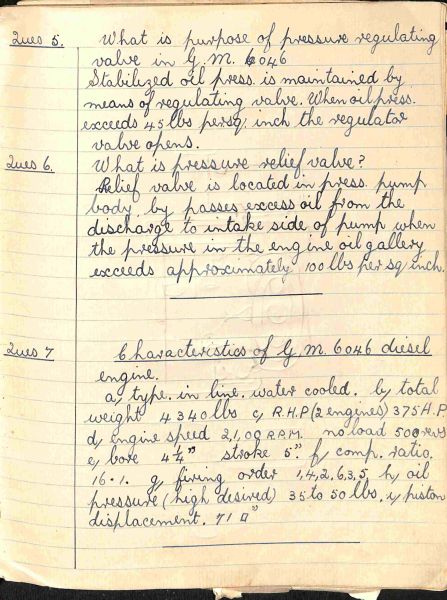 Ques 5. What is purpose of pressure regulating
valve in G.M. 6046
Stabilized oil press. is maintained by
means of regulating valve. When oil press.
exceeds 45 lbs per sq. inch the regulator
valve opens.
Ques 6. What is pressure relief valve?
Relief valve is located in press. pump
body, by passes excess oil from the
discharge to intake side of pump when
the pressure in the engine oil gallery
exceeds approximately 100 lbs per sq inch.
Ques 7 Characteristics of G.M. 6046 diesel
engine.
a, type. in line. water cooled. b, total
weight 4340 lbs c, R.H.P (2 engines) 375 H.P
d, engine speed 2,100 R.P.M. no load 500
e, bore 4¼" stroke 5". f, comp. ratio.
16.1. g, firing order 1,4,2,6,3,5 h, oil
pressure (high desired) 35 to 50 lbs. i, piston
displacement. 71 □"